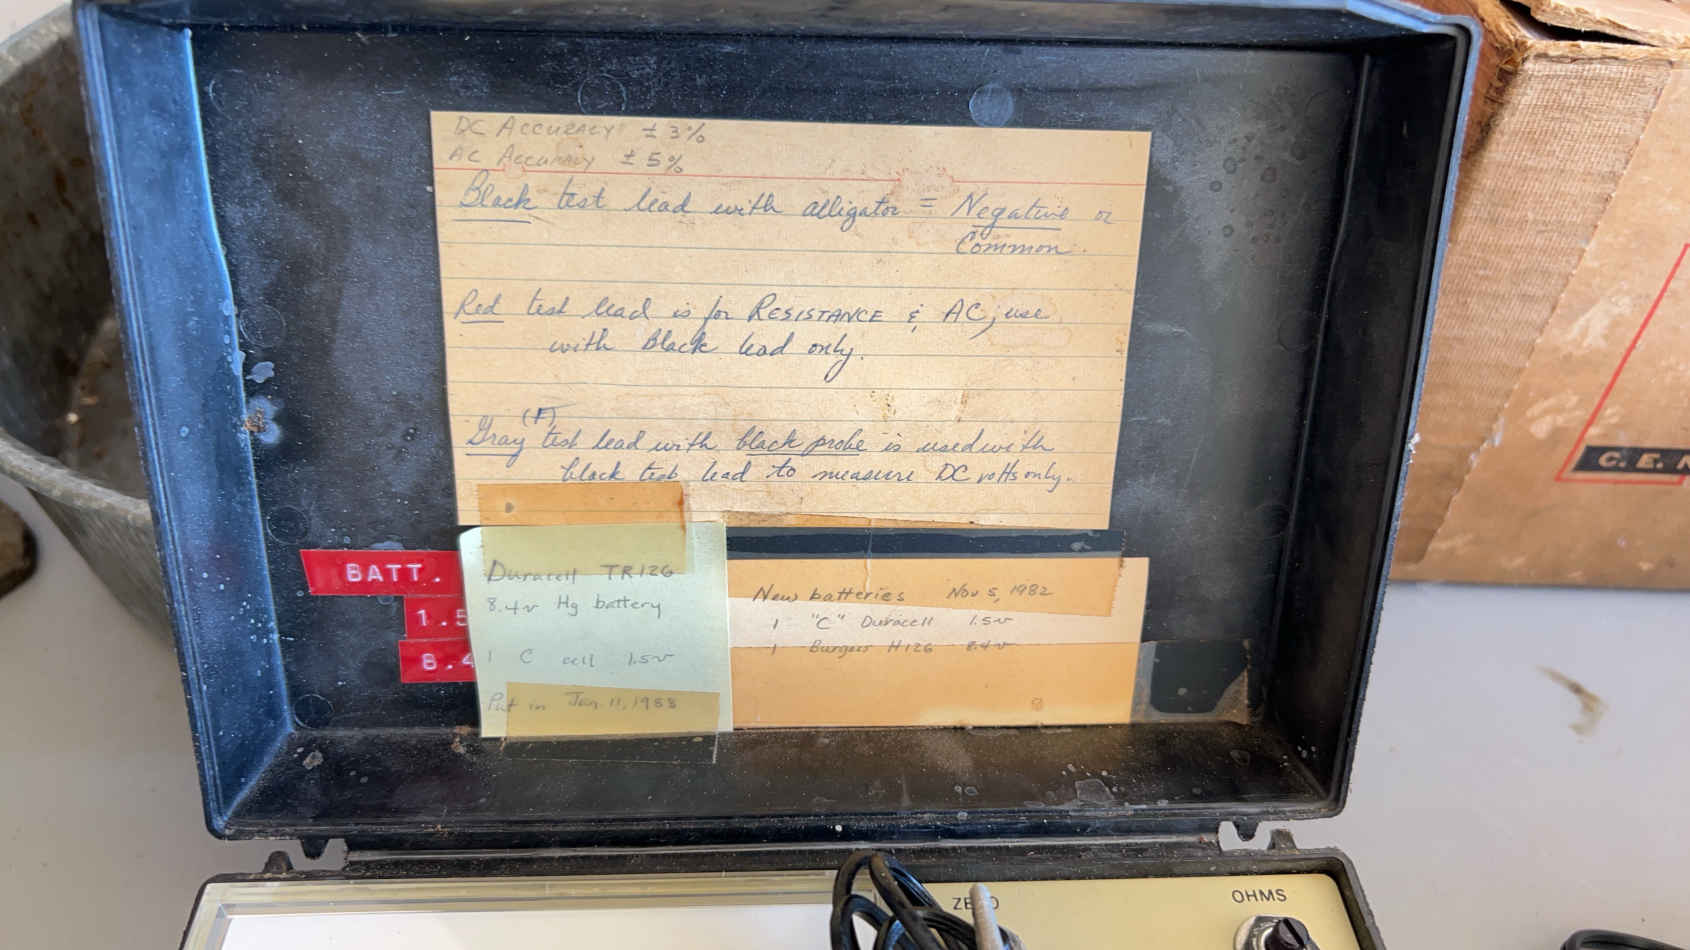 DC ACCURACY ± 3%
AC ACCURACY ± 5%
Black test lead with alligator = Negative or
Common.
Red test lead is for RESISTANCE & AC; use
with black lead only.
(F)
Gray test lead with black probe is used with
black test lead to measure DC volts only.
BATT.
1.5
8.4
Duracell TR126
8.4v Hg battery
1 C cell 1.5v
Put in Jan. 11, 1988
New batteries Nov 5, 1982
1 "C" Duracell 1.5v
1 Burgess H126 8.4v
C. E.
ZERO
OHMS